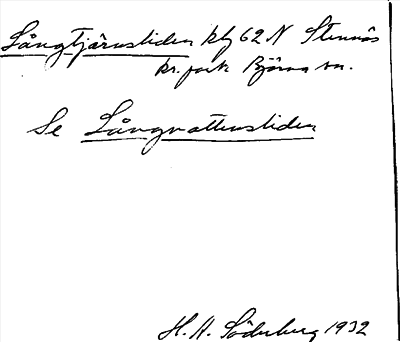 Långtjärnsliden klj 62 N Stennäs
kr.park Björna sn.
Se Långvattensliden
H. A. Söderberg 1932